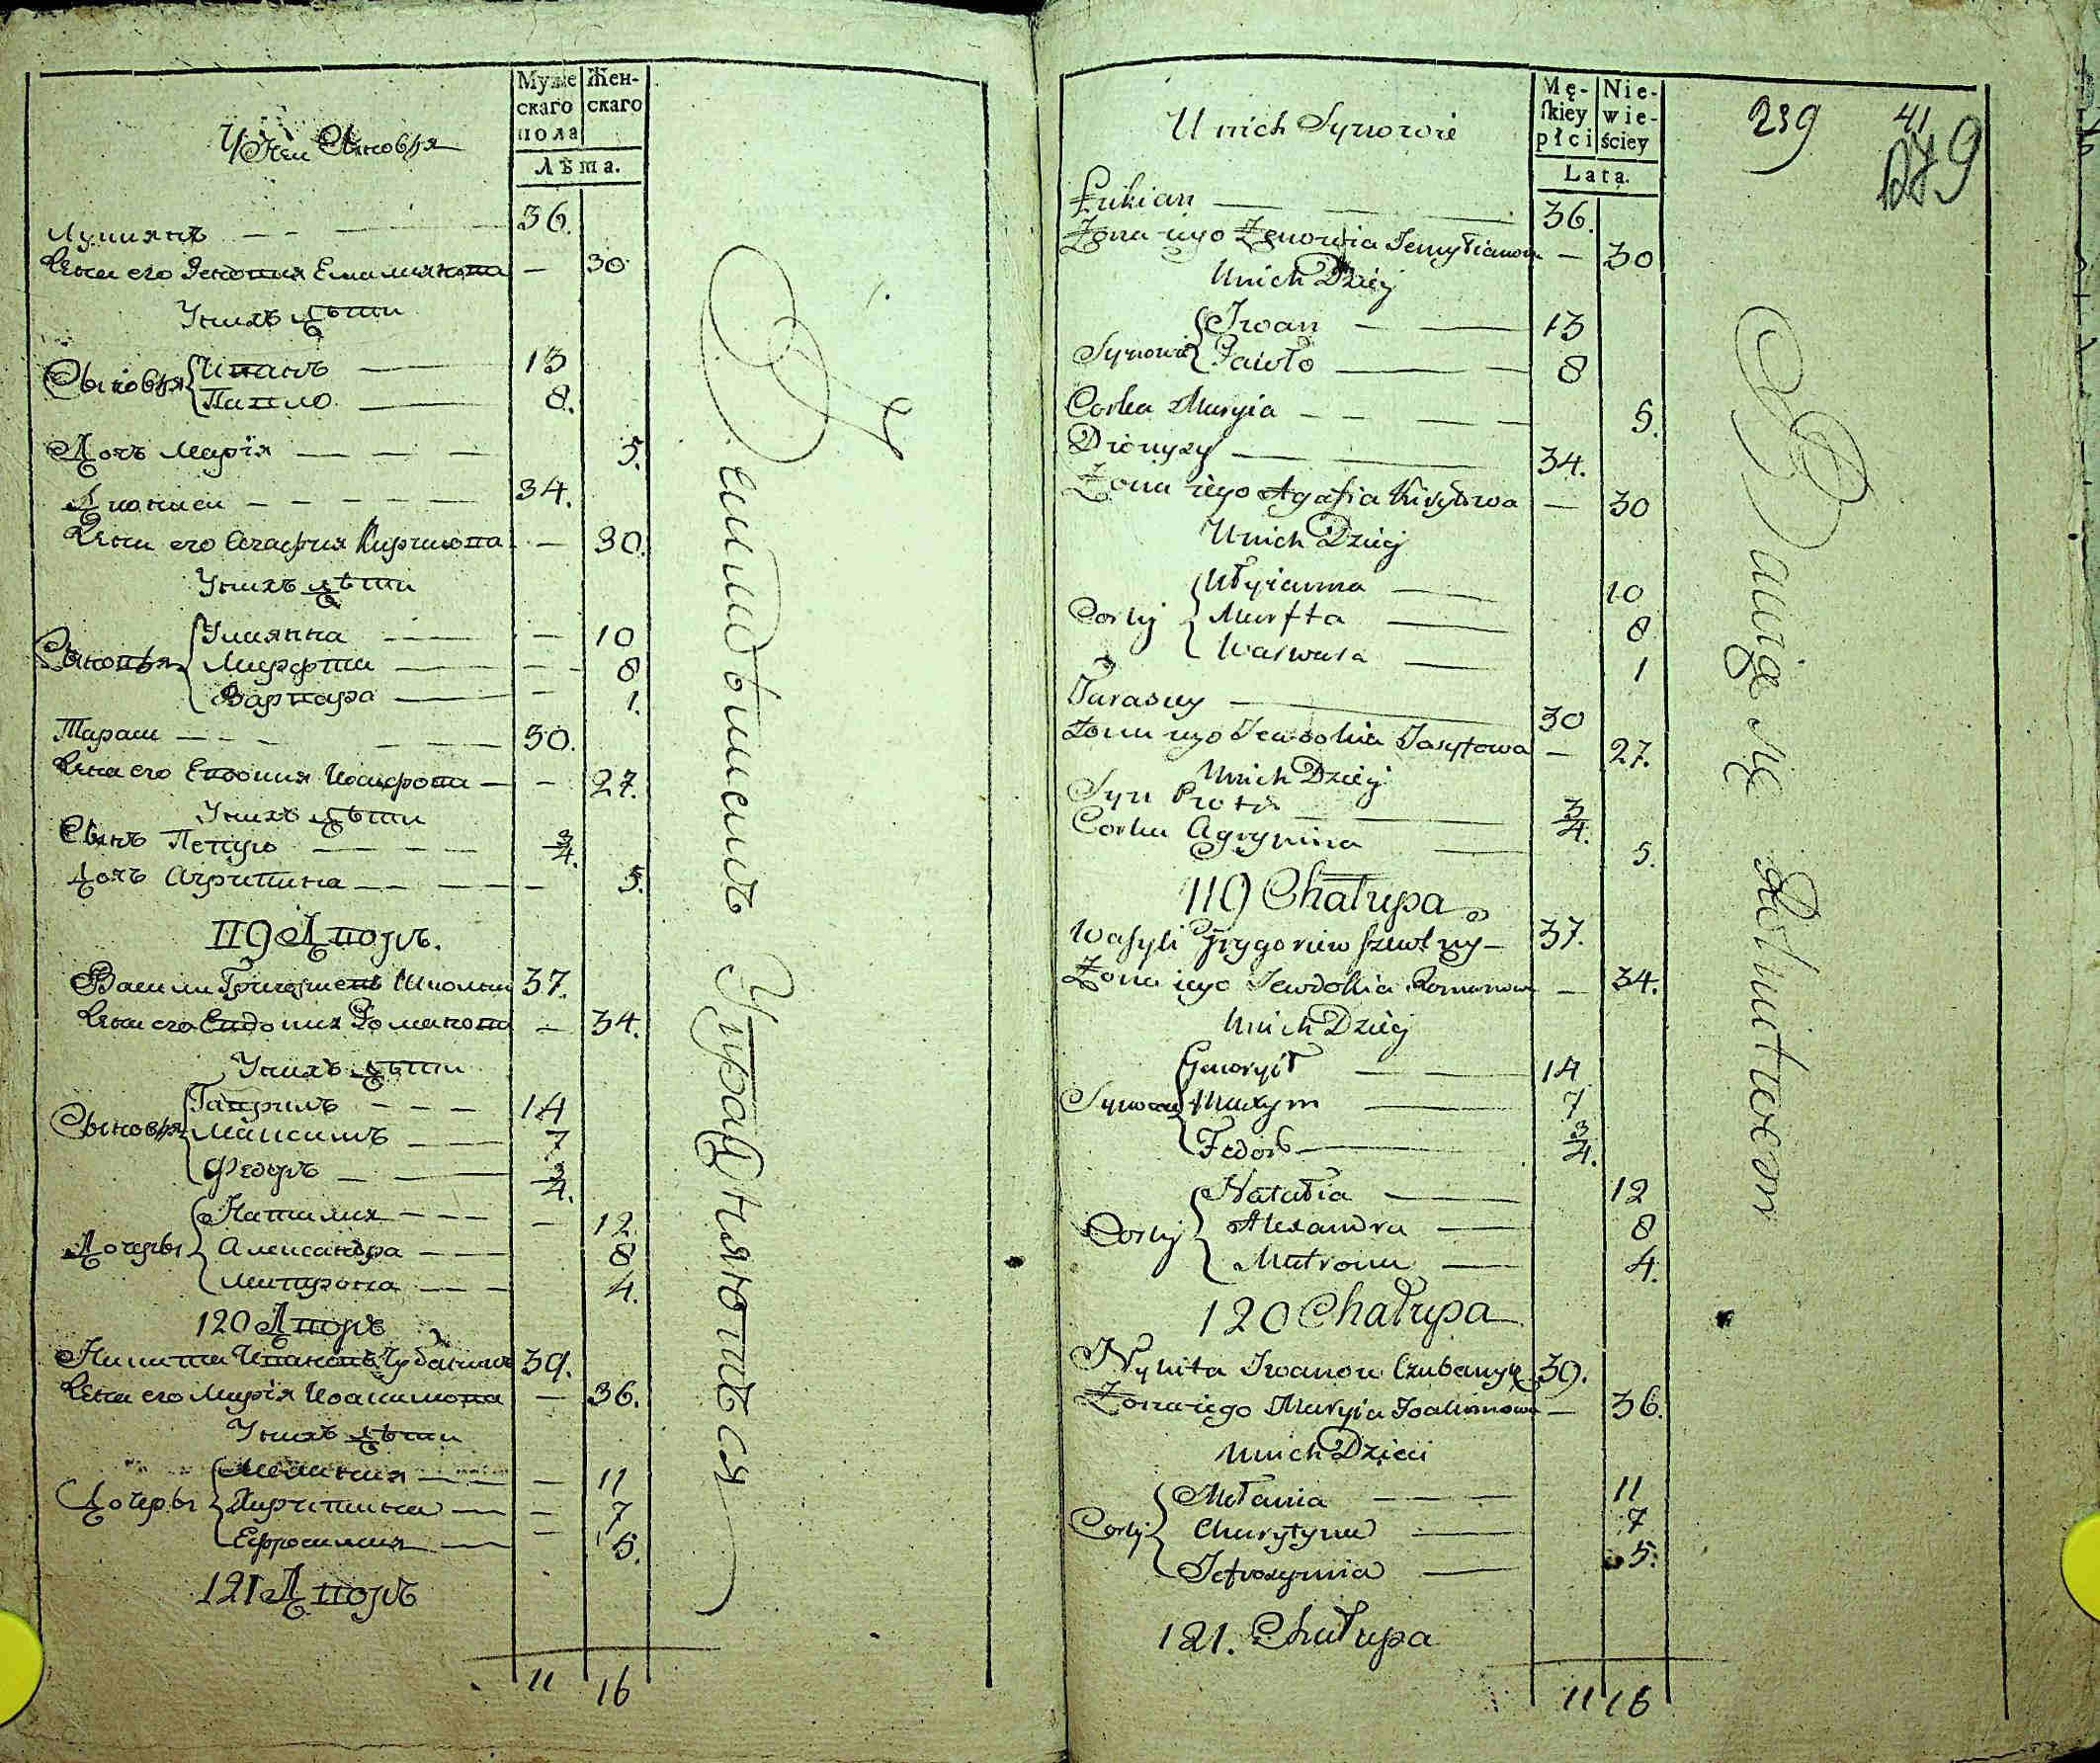 Муже Жен-
скаго скаго
пола
Лѣта.
У Ней Сыновья
Лукиянъ 36.
Жена его Зеновия Емилиянова — 30
У нихъ дѣти
Сыновья Иванъ 13
Павло 8.
Дочь Марія 5.
Дионисий 34.
Жена его Агафия Кирилова — 30.
У нихъ дѣти
Улиянна — 10
Марфта — 8
Варвара — 1.
Тарасъ 30.
Жена его Евдокия Иосифова — 27.
У нихъ дѣти
Сынъ Петро 3/4.
дочь Агрипина — 5.
119 Дворъ.
Василий Григориевъ 37.
Жена его Евдокия Романова — 34.
У нихъ дѣти
Сыновья Гавриилъ 14
Максимъ 7
Федоръ 3/4.
Дочеры Наталия — 12
Александра 8
Матрона 4.
120 Дворъ
Никита Ивановъ Чубаникъ 39.
Жена его Марія Иоакимова — 36.
У нихъ дѣти
Дочеры Мелания — 11
Харитина — 7
Ефросиния — 5.
121 Дворъ
11 16
вительемъ Упражняються
Mę- Nie-
skiey wie-
płci ściey
Lata.
U nich Synowie
Łukian 36.
Żona iego Zenowia Jemylianowa — 30
U nich Dziey
Synowie Iwan 13
Pawło 8
Corka Maryia 5.
Dionyzy 34.
Żona iego Agafia Kiryłowa — 30
U nich Dziey
Corky Ulyianna 10
Marfta 8
Warwara 1
Tarasuy 30
Żona iego Jewdokia Josyfowa — 27.
U nich Dziey
Syn 3/4.
Corka Agrypina 5.
119 Chałupa
Wasyli Grygoriew Szwolny 37.
Żona iego Jewdokia Romanowa — 34.
U nich Dziey
Synowie Gawryił 14
Maxym 7
Fedor 3/4.
Corky Natalia 12
Alexandra 8
Matrona 4.
120 Chałupa
Nykita Iwanow Czubanyk 39.
Żona iego Maryia Joakimowa — 36.
U nich Dzieci
Corky Mełania 11
Charytyna 7
Jefrosynia 5.
121. Chałupa
11 16
Bawią się Rolnictwem
239 41
279